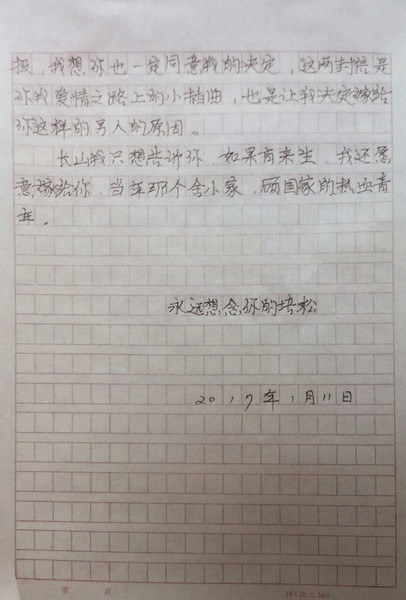 报，我想你也一定同意我的决定，这两封信是
你我爱情之路上的小插曲，也是让我决定嫁给
你这样的男人的原因。
长山我只想告诉你，如果有来生，我还愿
意嫁给你，当年那个舍小家，顾国家的热血青
年。
永远想念你的培松
2017年1月11日
第 页